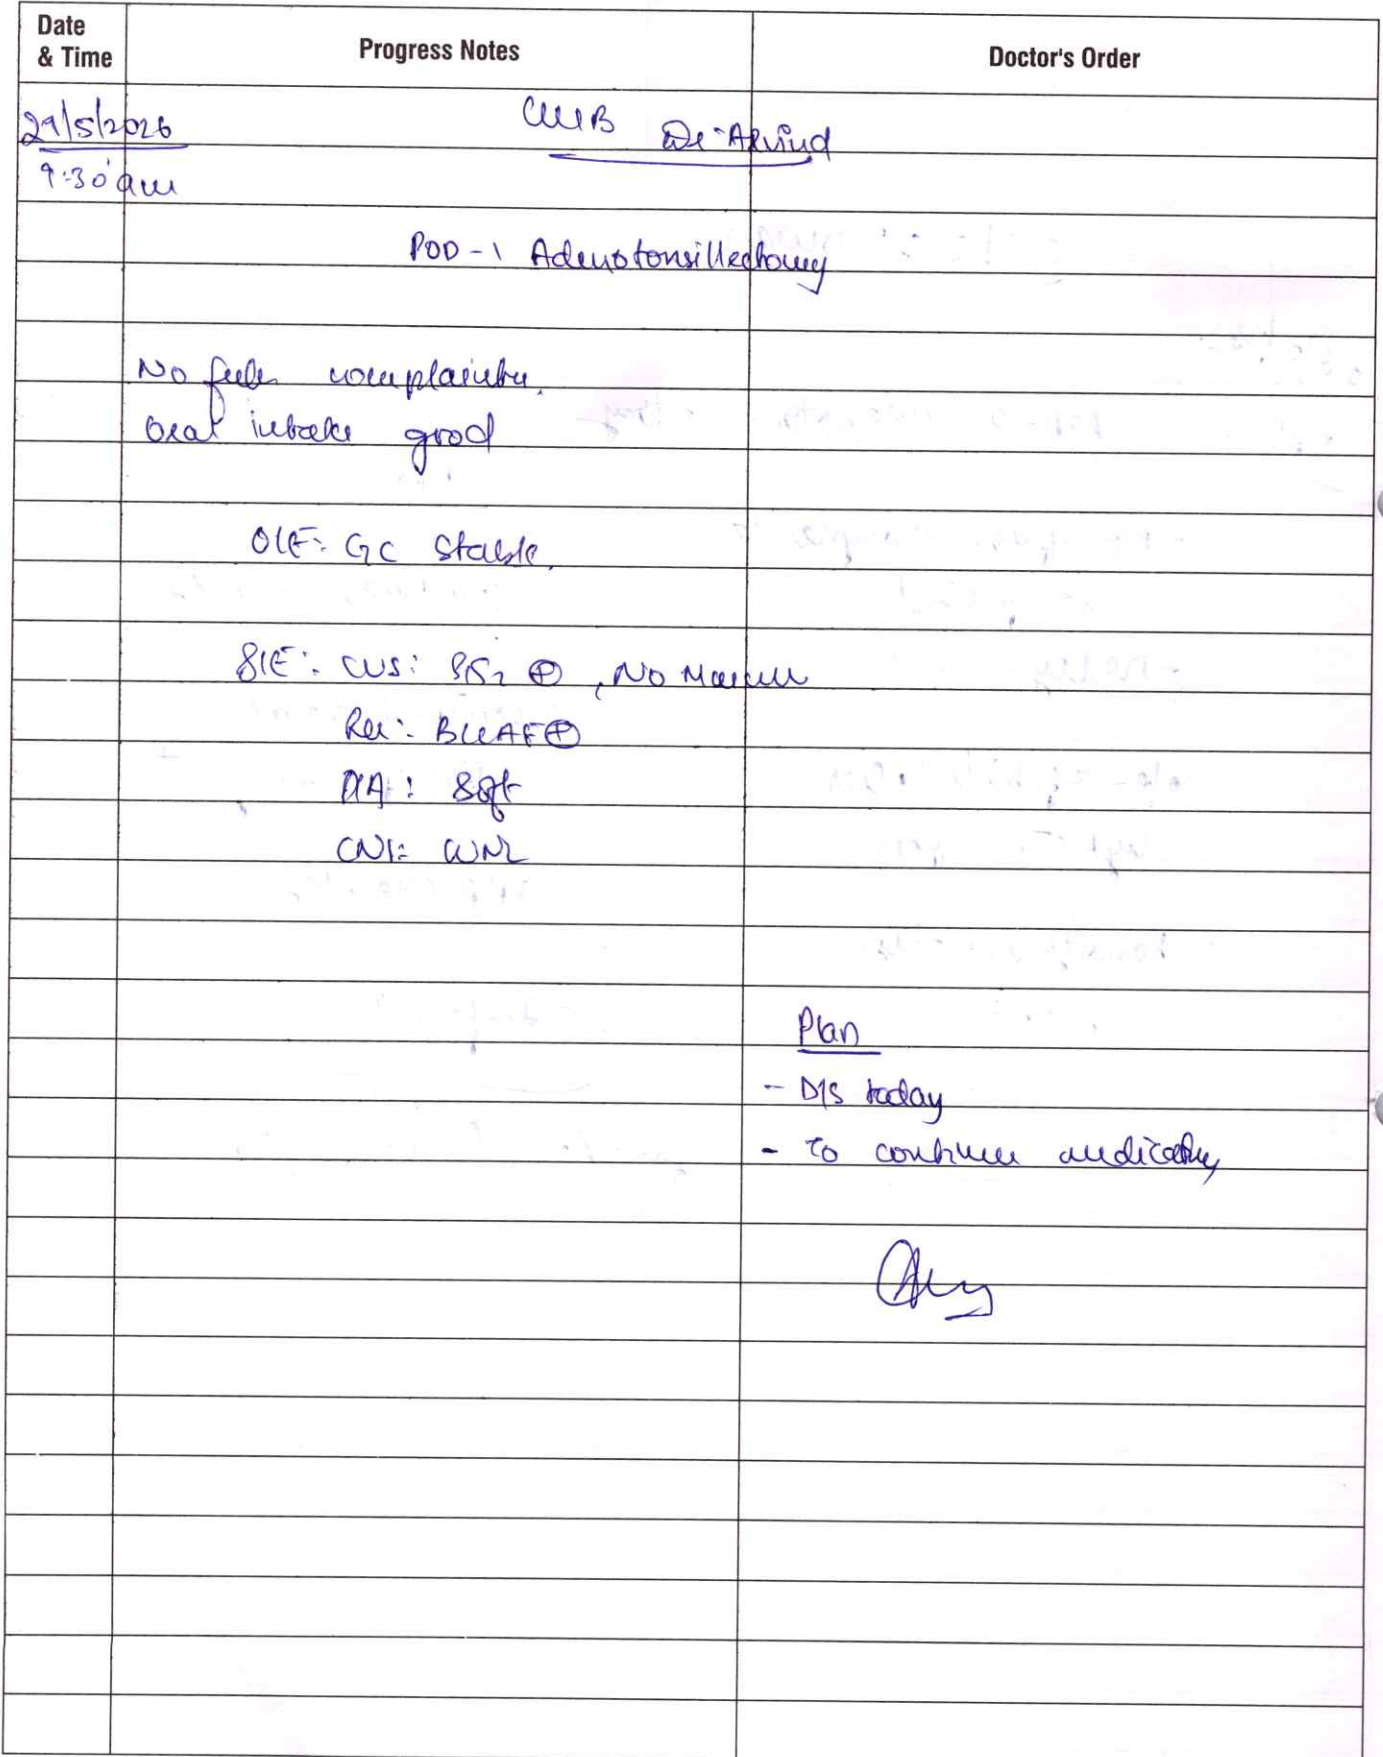 Date & Time
Progress Notes
Doctor's Order
29/5/2026
9:30 am
Dr. Arvind
POD-1 Adenotonsillectomy
No complaints.
Oral intake good
O/E: GC Stable.
S/E: CVS: S1S2 ⊕, No Murmur
BLAE ⊕
P/A: Soft
CNS: WNL
Plan
- D/S today
- To continue medication